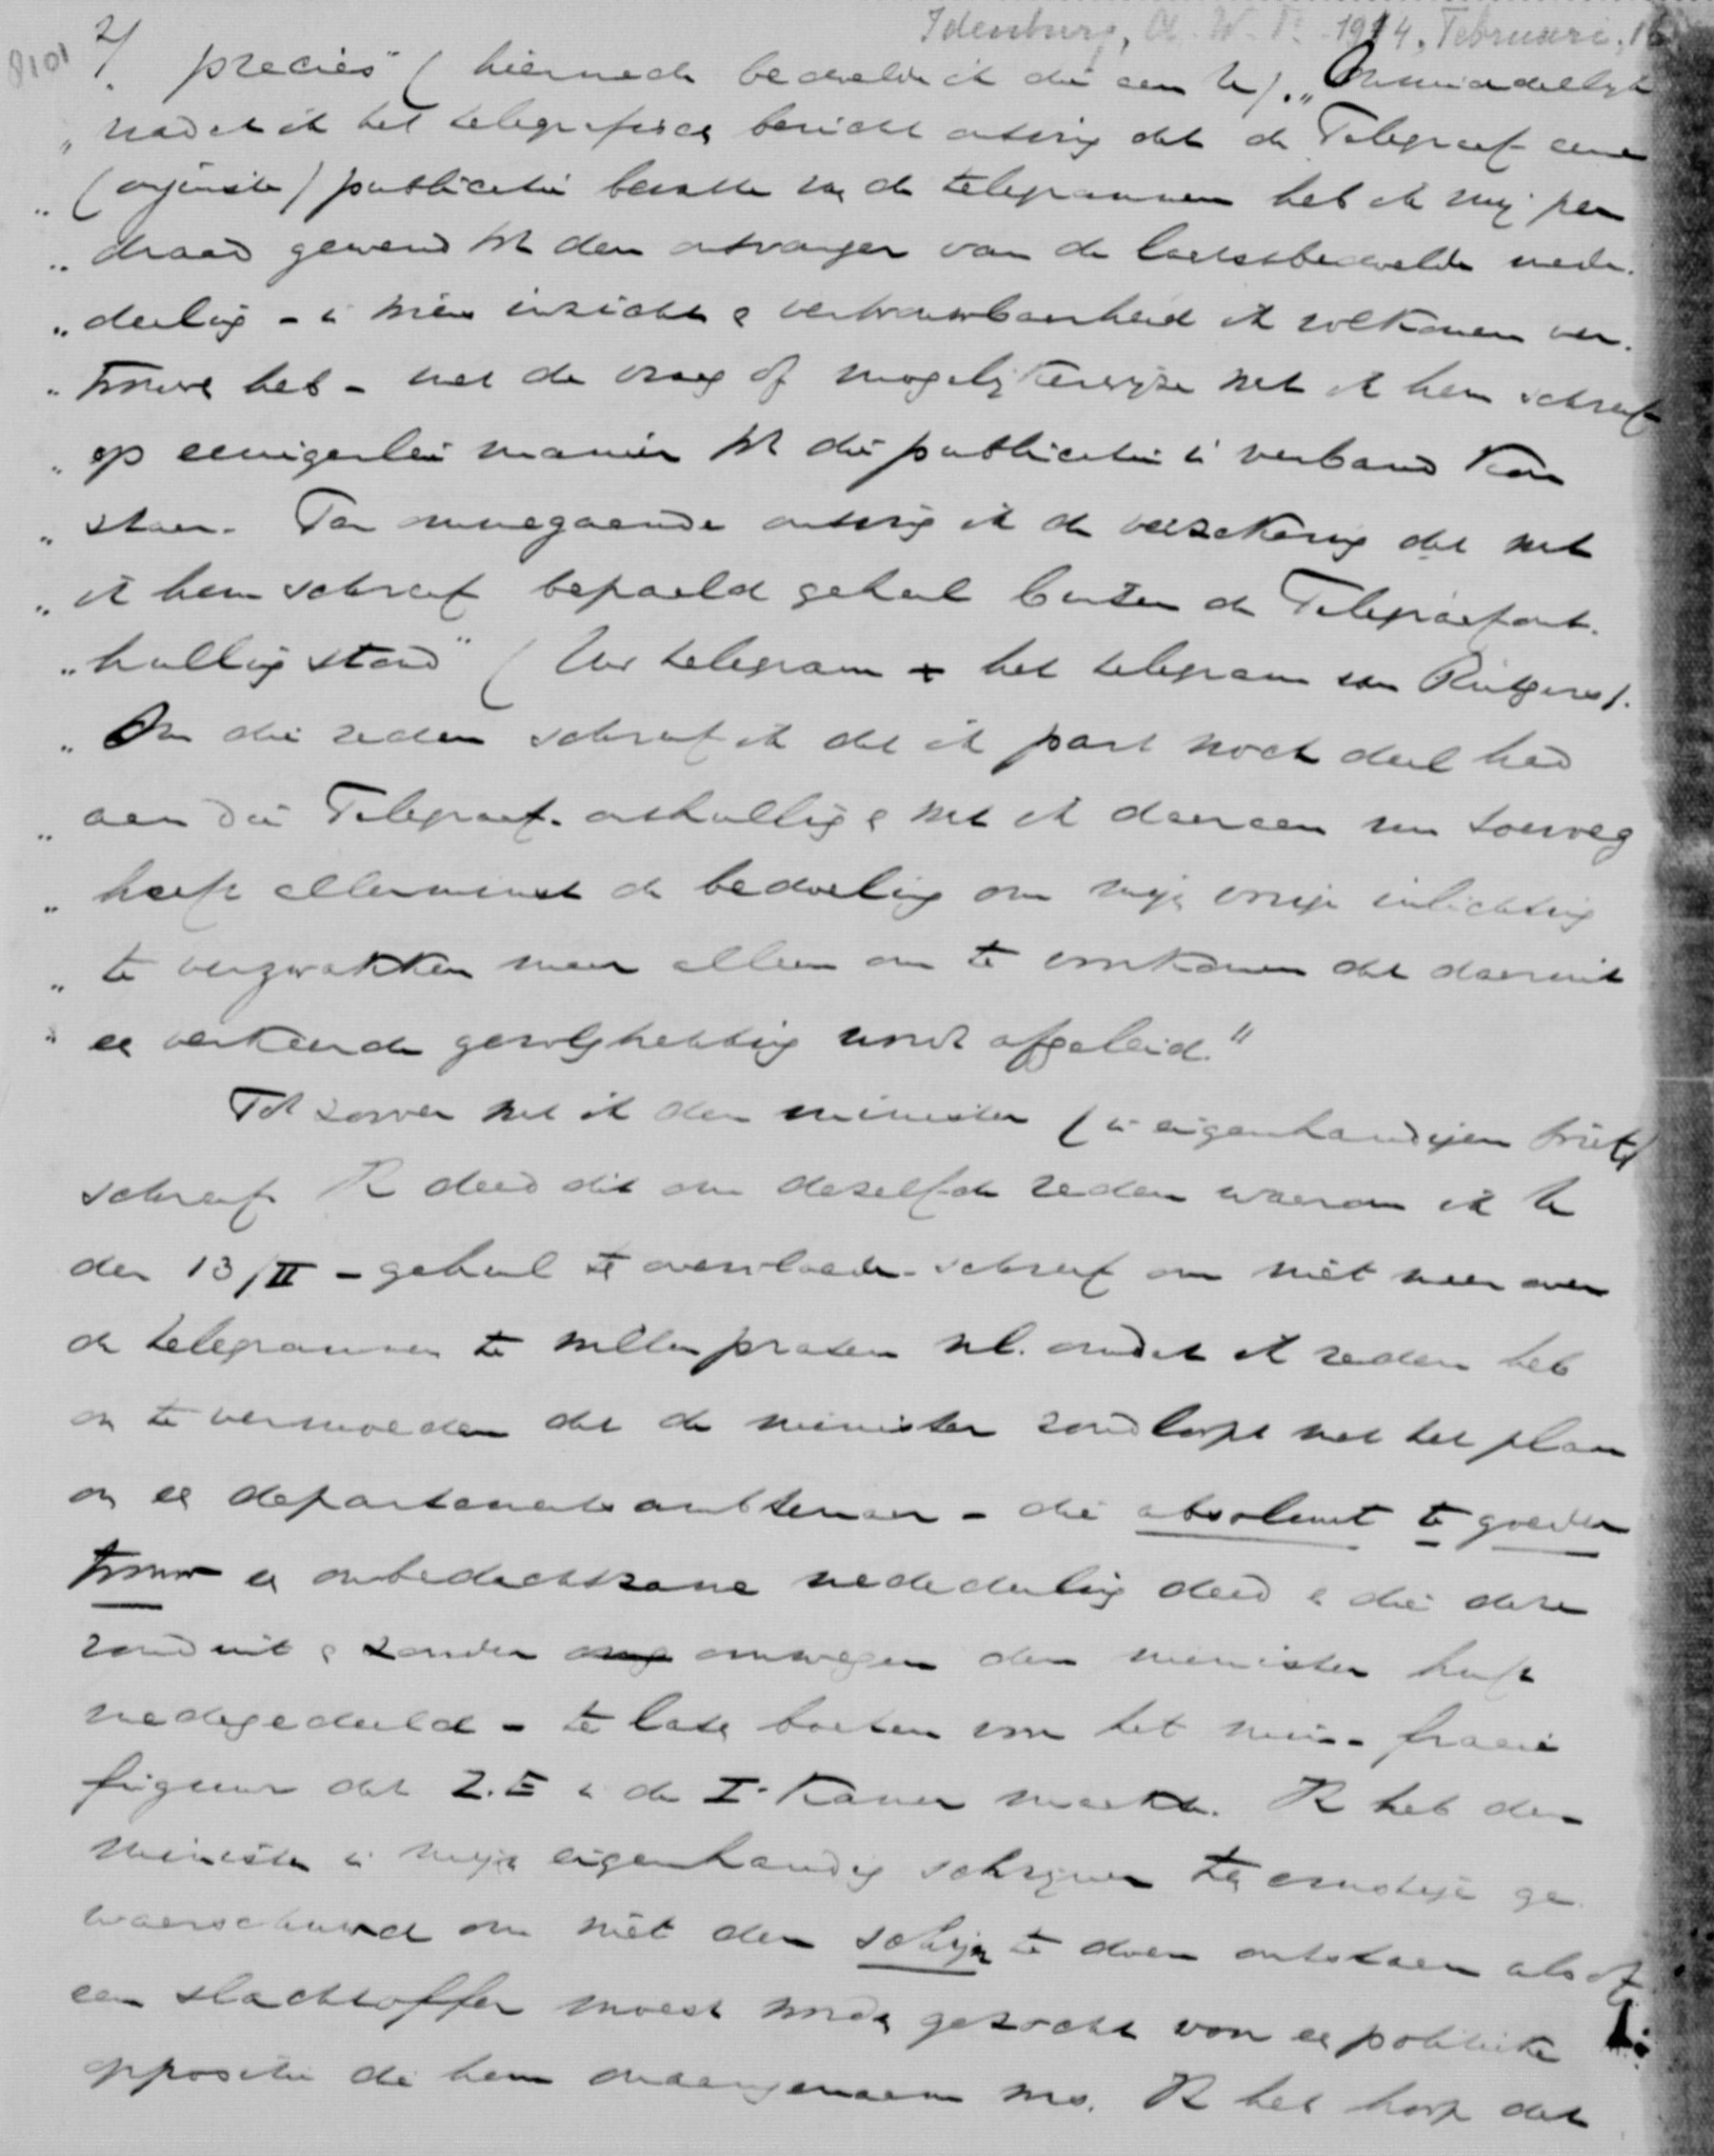 Idenburg, A.W.F. 1914, Februari, 16
8101
2/. precies" (hiermede bedoelde ik die aan U). "Onmiddellijk
" nadat ik het telegrafisch bericht ontving dat de Telegraaf eene
" (onjuiste) publicatie bevatte van de telegrammen heb ik mij per
" draad gewend tot den ontvanger van de laatstbedoelde mede-
" deeling - in wiens inzicht & vertrouwbaarheid ik volkomen ver-
" trouwen heb - met de vraag of mogelijkerwijze wat ik hem schreef
" op eenigerlei manier tot die publicatie in verband kon
" staan. Per ommegaande ontving ik de verzekering dat wat
" ik hem schreef bepaald geheel buiten de Telegraafont-
" hulling stond" (Uw telegram + het telegram van Rutgers).
" Om die reden schreef ik dat ik part noch deel had
" aan die Telegraaf-onthulling & wat ik daaraan nu toevoeg
" heeft allerminst de bedoeling om mijn vorige inlichting
" te verzwakken maar alleen om te voorkomen dat daaruit
" een verkeerde gevolgtrekking wordt afgeleid."
Tot zoover wat ik den minister (in eigenhandigen brief)
schreef. Ik deed dit om dezelfde reden waarom ik U
den 13/II - geheel te overvloede - schreef om niet meer over
de telegrammen te willen praten nl. omdat ik reden heb
om te vermoeden dat de minister rondloopt met het plan
om een departementsambtenaar - die absoluut te goeder
trouw een onbedachtzame mededeeling deed & die deze
ronduit & zonder omwegen den minister heeft
medegedeeld - te laten boeten voor het min-fraaie
figuur dat Z.E in de I-Kamer maakte. Ik heb den
minister in mijn eigenhandig schrijven ten ernstigste ge-
waarschuwd om niet den schijn te doen ontstaan alsof
een slachtoffer moest worden gezocht voor een politieke
oppositie die hem onaangenaam was. Ik heb hoop dat